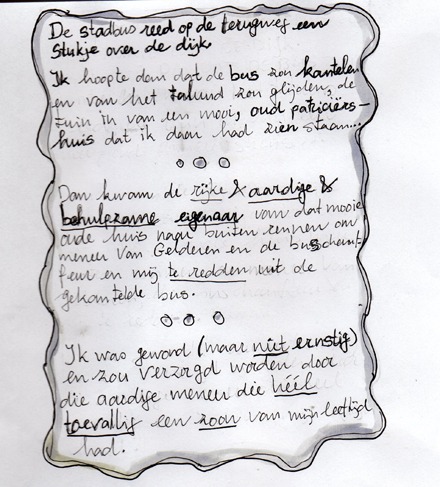 De stadbus reed op de terugweg een
stukje over de dijk.
Ik hoopte dan dat de bus zou kantelen
en van het talud zou glijden, de
tuin in van een mooi, oud patriciërs-
huis dat ik daar had zien staan...
Dan kwam de rijke & aardige &
behulpzame eigenaar van dat mooie
oude huis naar buiten rennen om
meneer Van Gelderen en de buschauf-
feur en mij te redden uit de
gekantelde bus.
Ik was gewond (maar niet ernstig)
en zou verzorgd worden door
die aardige meneer die héél
toevallig een zoon van mijn leeftijd
had.